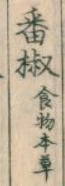 番椒食物本草